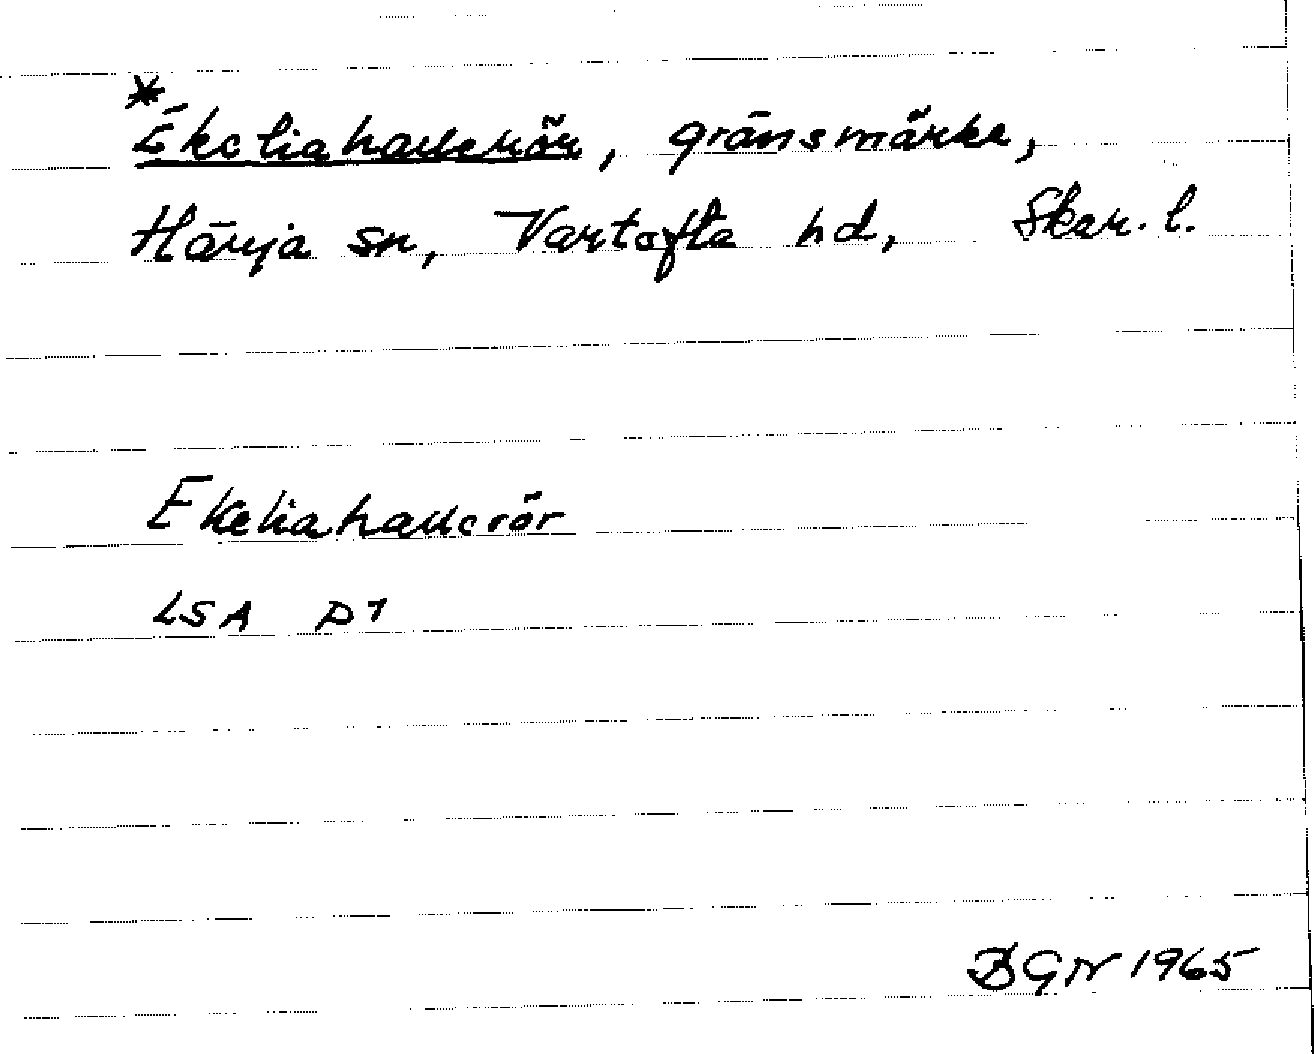 *
Ekeliahallerör, gränsmärke,
Härja sn, Vartofta hd, Skar. l.
Ekeliahallerör
LSA D7
BGN 1965